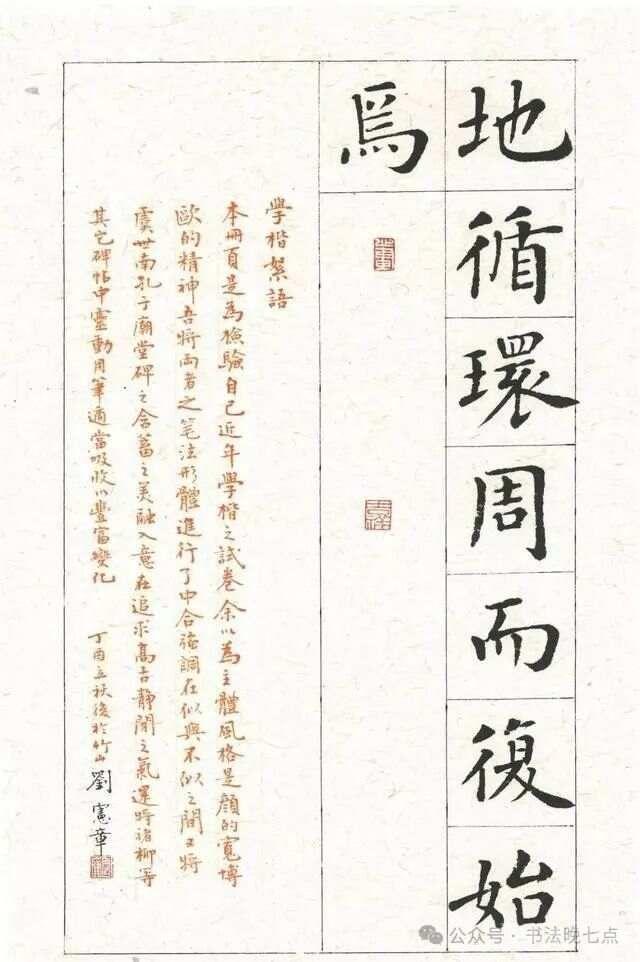 地循環周而復始
焉
学楷絮語
本冊頁是為檢驗自己近年學楷之試卷余以為主體風格是顔的寬博
歐的精神吾將両者之笔法形體進行了中合強調在似與不似之間又將
虞世南孔子廟堂碑之含蓄之美融入意在追求高古静閒之氣運時褚柳等
其它碑帖中靈動用筆適當吸收以豐富變化
丁酉立秋後於竹山
劉憲章
公众号·书法晚七点